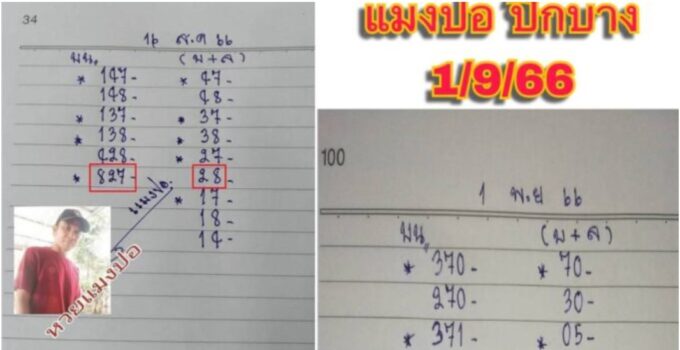 34
16 ส.ค 66
บน (บ+ล)
* 147- * 47-
148- 48-
* 137- * 37-
* 138- * 38-
428- * 27-
* 827- 28-
แมงปอ * 17-
18-
14-
หวยแมงปอ
แมงปอ ปีกบาง
1/9/66
100
1 พ.ย 66
บน (บ+ล)
* 370- * 70-
270- 30-
* 371- * 05-